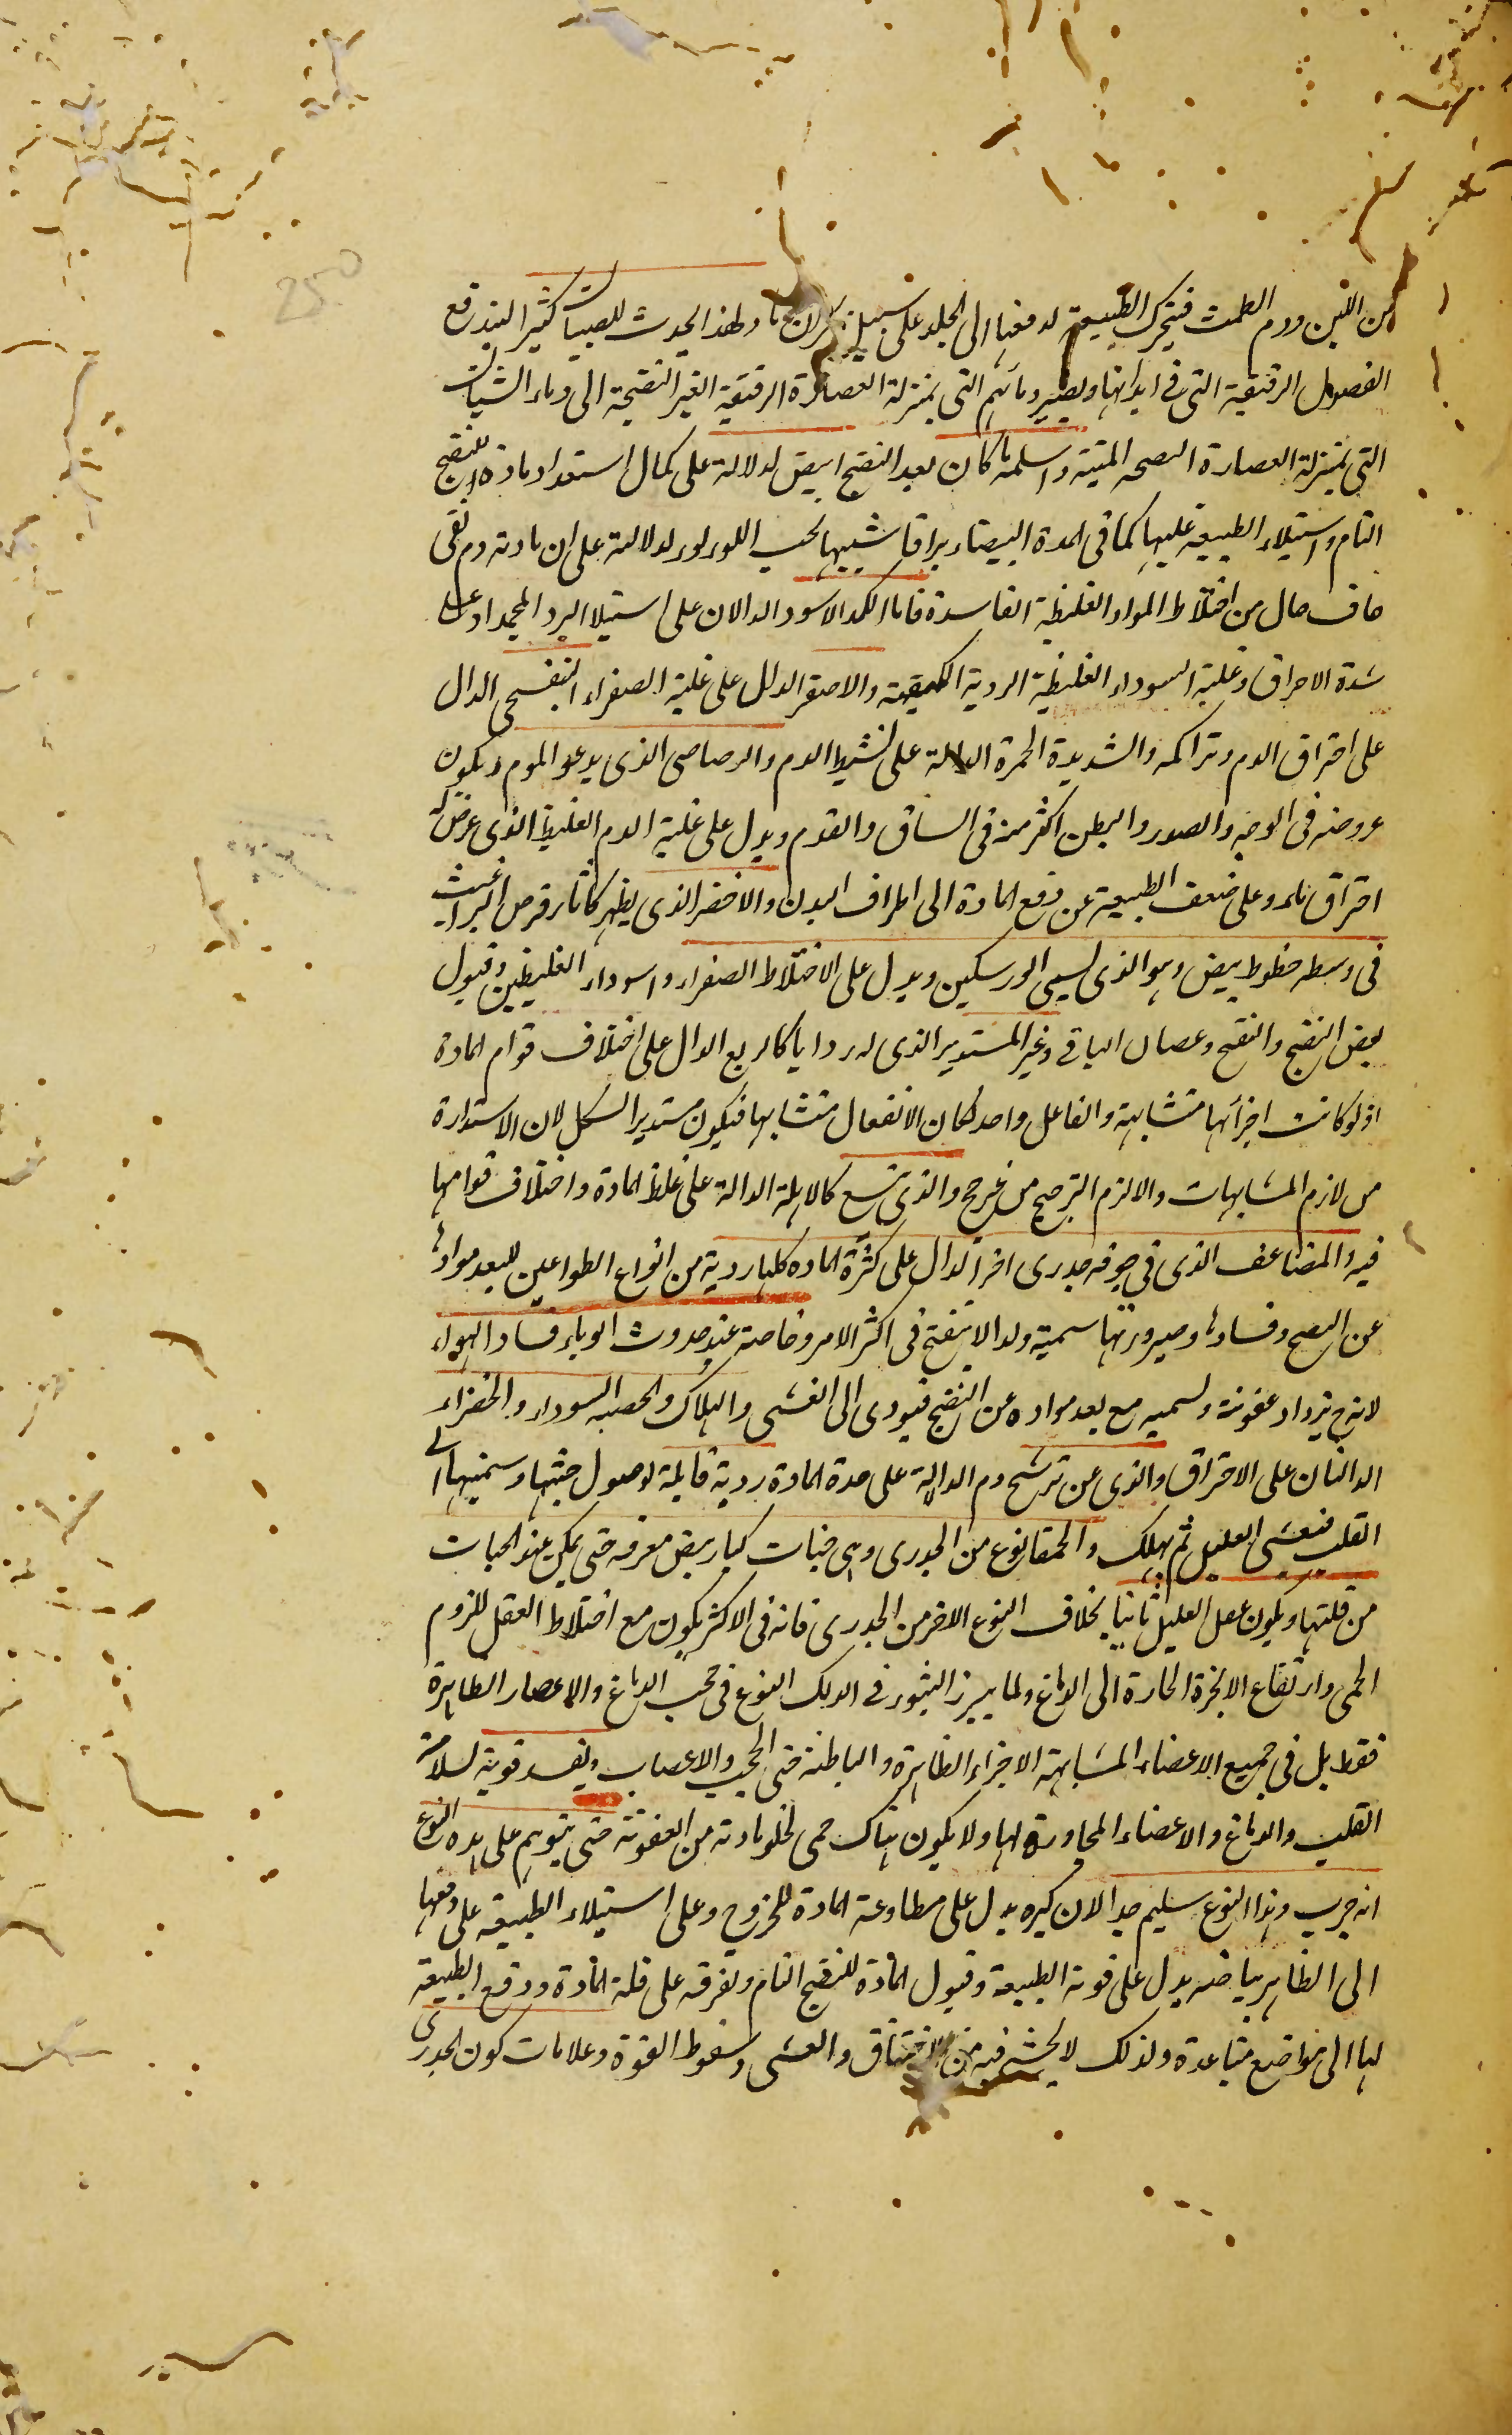 من اللبن ودم الطمث فيتحرك الطبيعة لدفعها الى الجلد على سبيل ولهذا يحدث للصبيان كثيرا ليندفع
الفضول الرقيقة التى فى ابدانها ويصير دمائهم التى بمنزلة العصارة الرقيقة الغير النضيجة الى دماء الشبان
التى بمنزلة العصارة المتينة واسلمه ما كان بعد النضج ابيض لدلالة على كمال استعداد مادة للنضج
التام واستيلاء الطبيعة عليها كما فى المدة البيضاء براقا شبيها بحب اللولو لدلالة على ان مادته دم نقى
صاف خال من اختلاط المواد الغليظة الفاسدة فاما الكمد الاسود الدالان على استيلا البرد المجمد او على
شدة الاحراق وغلبة السوداء الغليظة الردية والاصفر الدال على غلبة الصفراء البنفسجى الدال
على احتراق الدم وتراكمه والشديدة الحمرة الدالة على تشيط الدم والرصاصى الذى يدعو الموم ويكون
عروضه فى الوجه والصدر والبطن اكثر منه فى الساق والقدم ويدل على غلبة الدم الغليظ الذى عرض له
احتراق ما وعلى ضعف الطبيعة عن دفع المادة الى اطراف البدن والاخضر الذى يظهر كاثار قرص البراغيث
فى وسطه خطوط بيض وهو الذى يسمى الورسكين ويدل على الاختلاط الصفراء والسوداء الغليظين وقبول
بعض النضج والنضج وعصان الباقى وغير المستدير الذى له زوايا كالربع الدال على اختلاف قوام المادة
اذ لو كانت اجزائها متشابهة والفاعل واحد لكان الانفعال متشابها فيكون مستدير الشكل لان الاستدارة
من لازم المشابهات والا لزم الترجيح من غير مرجح والذى يتسع كالاهلة الدالة على غلظ المادة واختلاف قوامها
فيه والمضاعف الذى فى جوفه جدرى اخر الدال على كثرة المادة كلها ردية من انواع الطواعين للبعد موادها
عن النضج وفسادها وصيرورتها سمية ولد الا ينضج فى اكثر الامر وخاصة عند حدوث الوباء وفساد الهواء
لانه ح يزداد عفونة وسميه مع بعد مواده عن النضج فيودى الى الغشى والهلاك والحصبه السوداء والخضراء
الدالتان على الاحتراق والذى عن ترشح دم الدالة على حدة المادة ردية قابلة لوصول خبثها وسميتها الى
القلب فيغشى العليل ثم يهلك والحمقا نوع من الجدرى وهى حبات كبار بيض متفرقه حتى يمكن عد الحبات
من قلتها ويكون عقل العليل ثابتا بخلاف النوع الاخر من الجدرى فانه فى الاكثر يكون مع اختلاط العقل للزوم
الحمى وارتفاع الابخرة الحارة الى الدماغ ولما يبرز البثور فى ذلك النوع فى حجب الدماغ والاعصار الظاهرة
فقط بل فى جميع الاعضاء المتشابهة الاجزاء الظاهرة والباطنة حتى الحجب والاعصاب ونفسه قوية لسلامة
القلب والدماغ والاعضاء المجاورة لها ولا يكون هناك حمى لخلو مادته من العفونة حتى يتوهم على هذه النوع
انه جرب وهذا النوع سليم جدا لان كبره يدل على مطاوعة المادة للخروج وعلى استيلاء الطبيعة على دفعها
الى الظاهر بياضه يدل على قوة الطبيعة وقبول المادة للنضج التام وتفرقه على قلة المادة ودفع الطبيعة
لها الى مواضع متباعدة ولذلك لا يخشى فيه من الاختناق والغشى وسقوط القوة وعلامات كون الجدرى